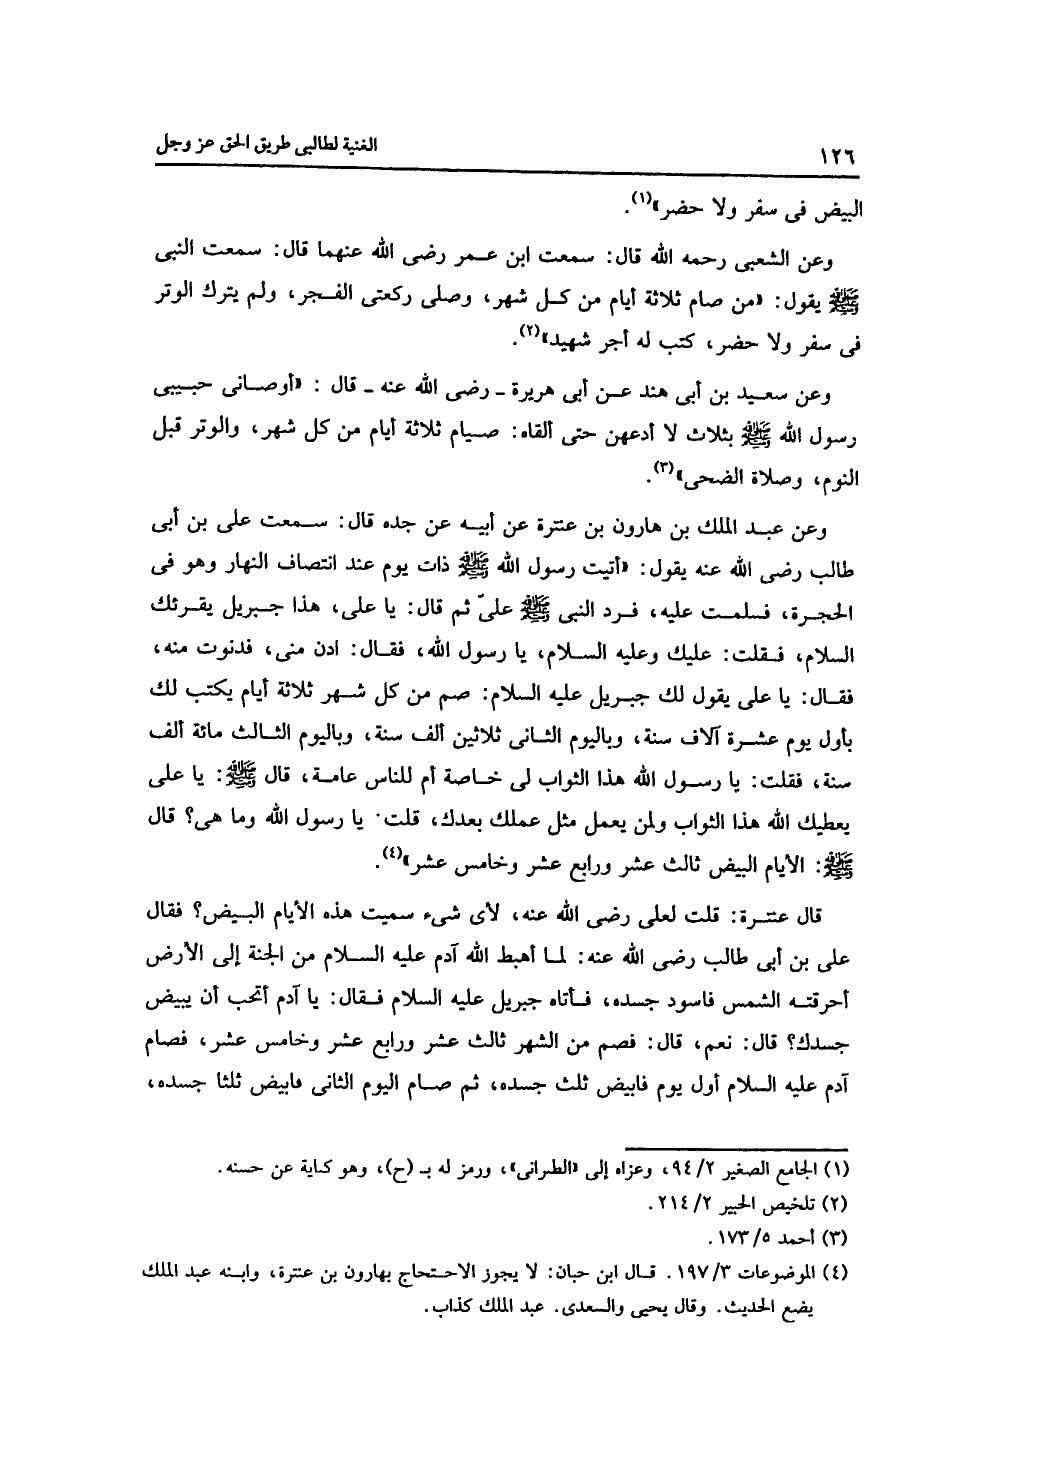 ١٢٦ الغنية لطالبى طريق الحق عز وجل
البيض فى سفر ولا حضر»(١).
وعن الشعبى رحمه الله قال: سمعت ابن عمر رضى الله عنهما قال: سمعت النبى
ﷺ يقول: «من صام ثلاثة أيام من كل شهر، وصلى ركعتى الفجر، ولم يترك الوتر
فى سفر ولا حضر، كتب له أجر شهيد»(٢).
وعن سعيد بن أبى هند عن أبى هريرة ـ رضى الله عنه ـ قال : «أوصانى حبيبى
رسول الله ﷺ بثلاث لا أدعهن حتى ألقاه: صيام ثلاثة أيام من كل شهر، والوتر قبل
النوم، وصلاة الضحى»(٣).
وعن عبد الملك بن هارون بن عنترة عن أبيه عن جده قال: سمعت على بن أبى
طالب رضى الله عنه يقول: «أتيت رسول الله ﷺ ذات يوم عند انتصاف النهار وهو فى
الحجرة، فسلمت عليه، فرد النبى ﷺ علىّ ثم قال: يا على، هذا جبريل يقرئك
السلام، فقلت: عليك وعليه السلام، يا رسول الله، فقال: ادن منى، فدنوت منه،
فقال: يا على يقول لك جبريل عليه السلام: صم من كل شهر ثلاثة أيام يكتب لك
بأول يوم عشرة آلاف سنة، وباليوم الثانى ثلاثين ألف سنة، وباليوم الثالث مائة ألف
سنة، فقلت: يا رسول الله هذا الثواب لى خاصة أم للناس عامة، قال ﷺ: يا على
يعطيك الله هذا الثواب ولمن يعمل مثل عملك بعدك، قلت· يا رسول الله وما هى؟ قال
ﷺ: الأيام البيض ثالث عشر ورابع عشر وخامس عشر»(٤).
قال عنترة: قلت لعلى رضى الله عنه، لأى شىء سميت هذه الأيام البيض؟ فقال
على بن أبى طالب رضى الله عنه: لما أهبط الله آدم عليه السلام من الجنة إلى الأرض
أحرقته الشمس فاسود جسده، فأتاه جبريل عليه السلام فقال: يا آدم أتحب أن يبيض
جسدك؟ قال: نعم، قال: فصم من الشهر ثالث عشر ورابع عشر وخامس عشر، فصام
آدم عليه السلام أول يوم فابيض ثلث جسده، ثم صام اليوم الثانى فابيض ثلثا جسده،
(١) الجامع الصغير ٢/ ٩٤، وعزاه إلى «الطبرانى»، ورمز له بـ (ح)، وهو كناية عن حسنه.
(٢) تلخيص الحبير ٢/ ٢١٤.
(٣) أحمد ٥/ ١٧٣.
(٤) الموضوعات ٣/ ١٩٧. قال ابن حبان: لا يجوز الاحتجاج بهارون بن عنترة، وابنه عبد الملك
يضع الحديث. وقال يحيى والسعدى. عبد الملك كذاب.